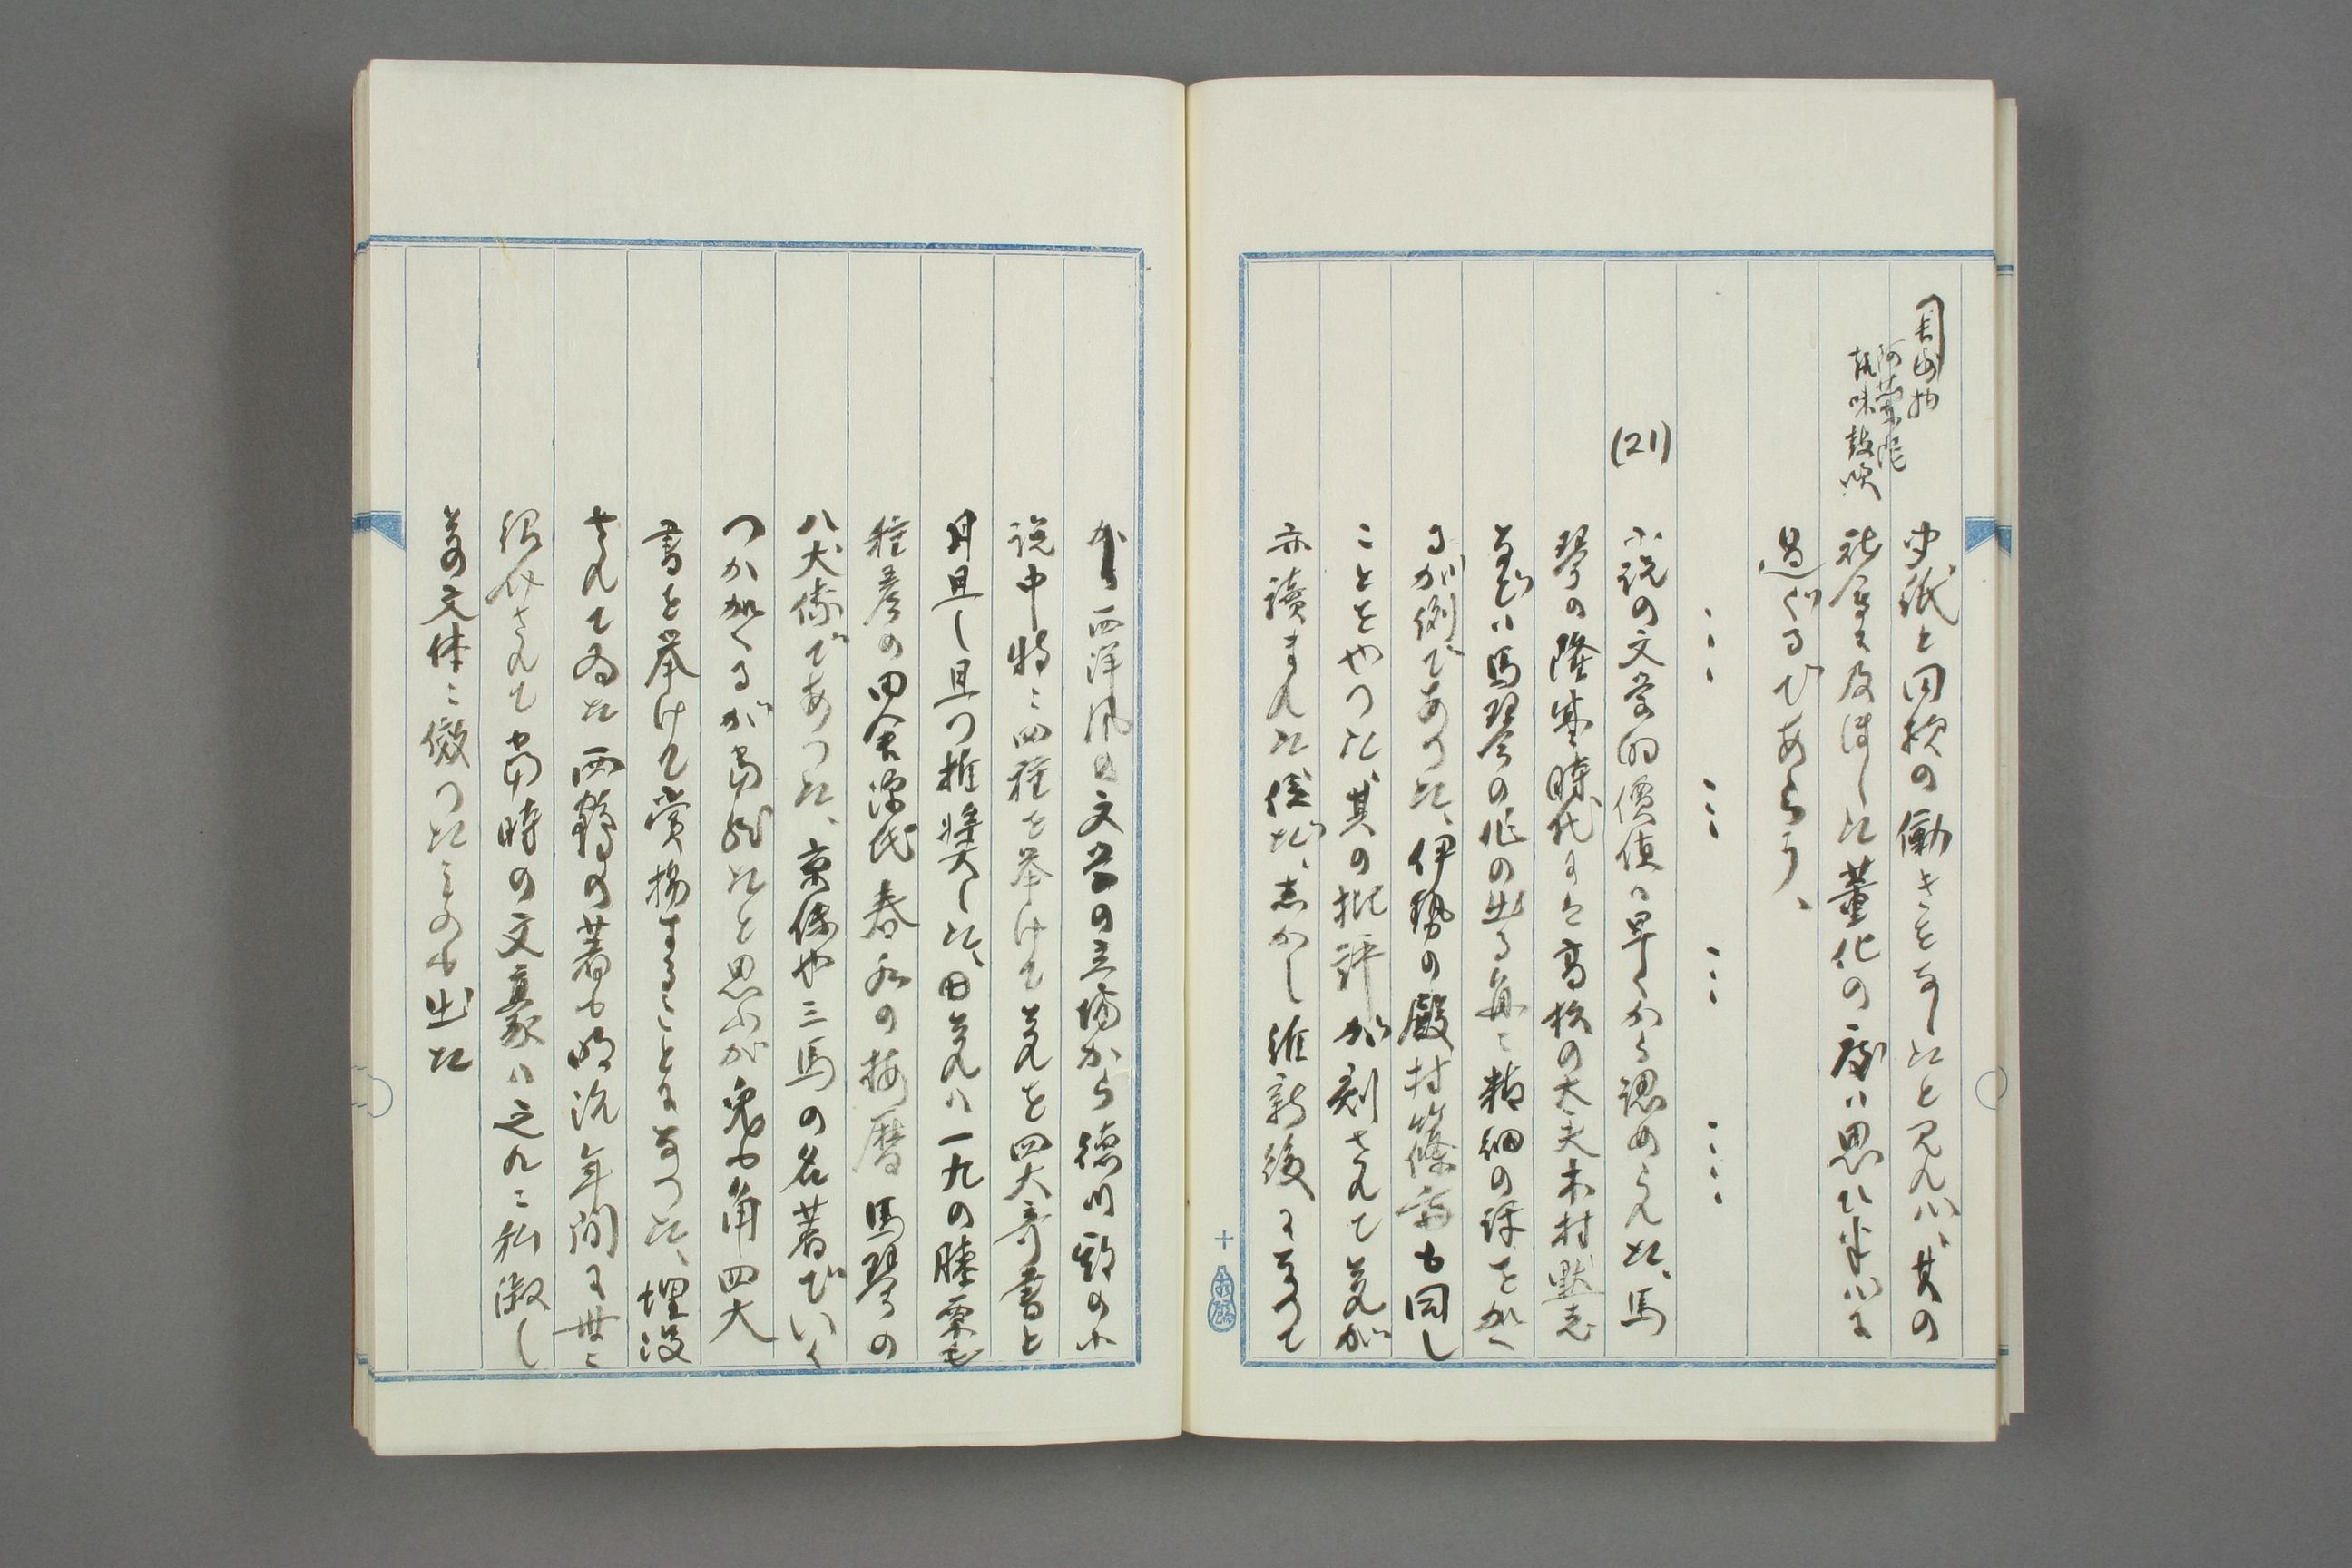 新聞紙と同様の働きをなしたと見れバ、其の
社会に及ぼした薫化の度ハ思ひ半バに
過ぐるであらう、
(21)
小説の文学的価値ハ早くから認めらえた、馬
琴の隆盛時代には高松の大夫木村黙老
などハ馬琴の作の出る毎ニ精細の評をかく
るが例であつた、伊勢の殿村篠斎も同し
ことをやつた其の批評が刻されて筭が
亦読まれた位だ、志かし維新後になつて
から西洋風の文学の立場から徳川期の小
説中特ニ四種を挙けて之れを四大奇書と
月旦し且つ推奨した、田之れハ一九の膝栗毛
種彦の田舎源氏春水の梅暦馬琴の
八犬伝であつた、京伝や三馬の名著でいく
つか加へるが当然だと思ふが兎も角四大
書を挙けて賞揚することになつた、埋没
されてゐた西鶴の著も明治年間に世ニ
紹介されて当時の文豪ハ之れニ私淑し
其の文体ニ倣つたものも出た